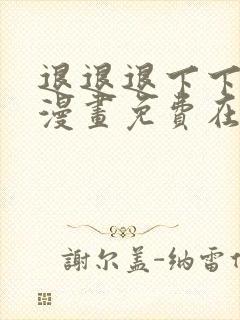 退退退下下
漫畫免費在
謝尔盖-纳雷